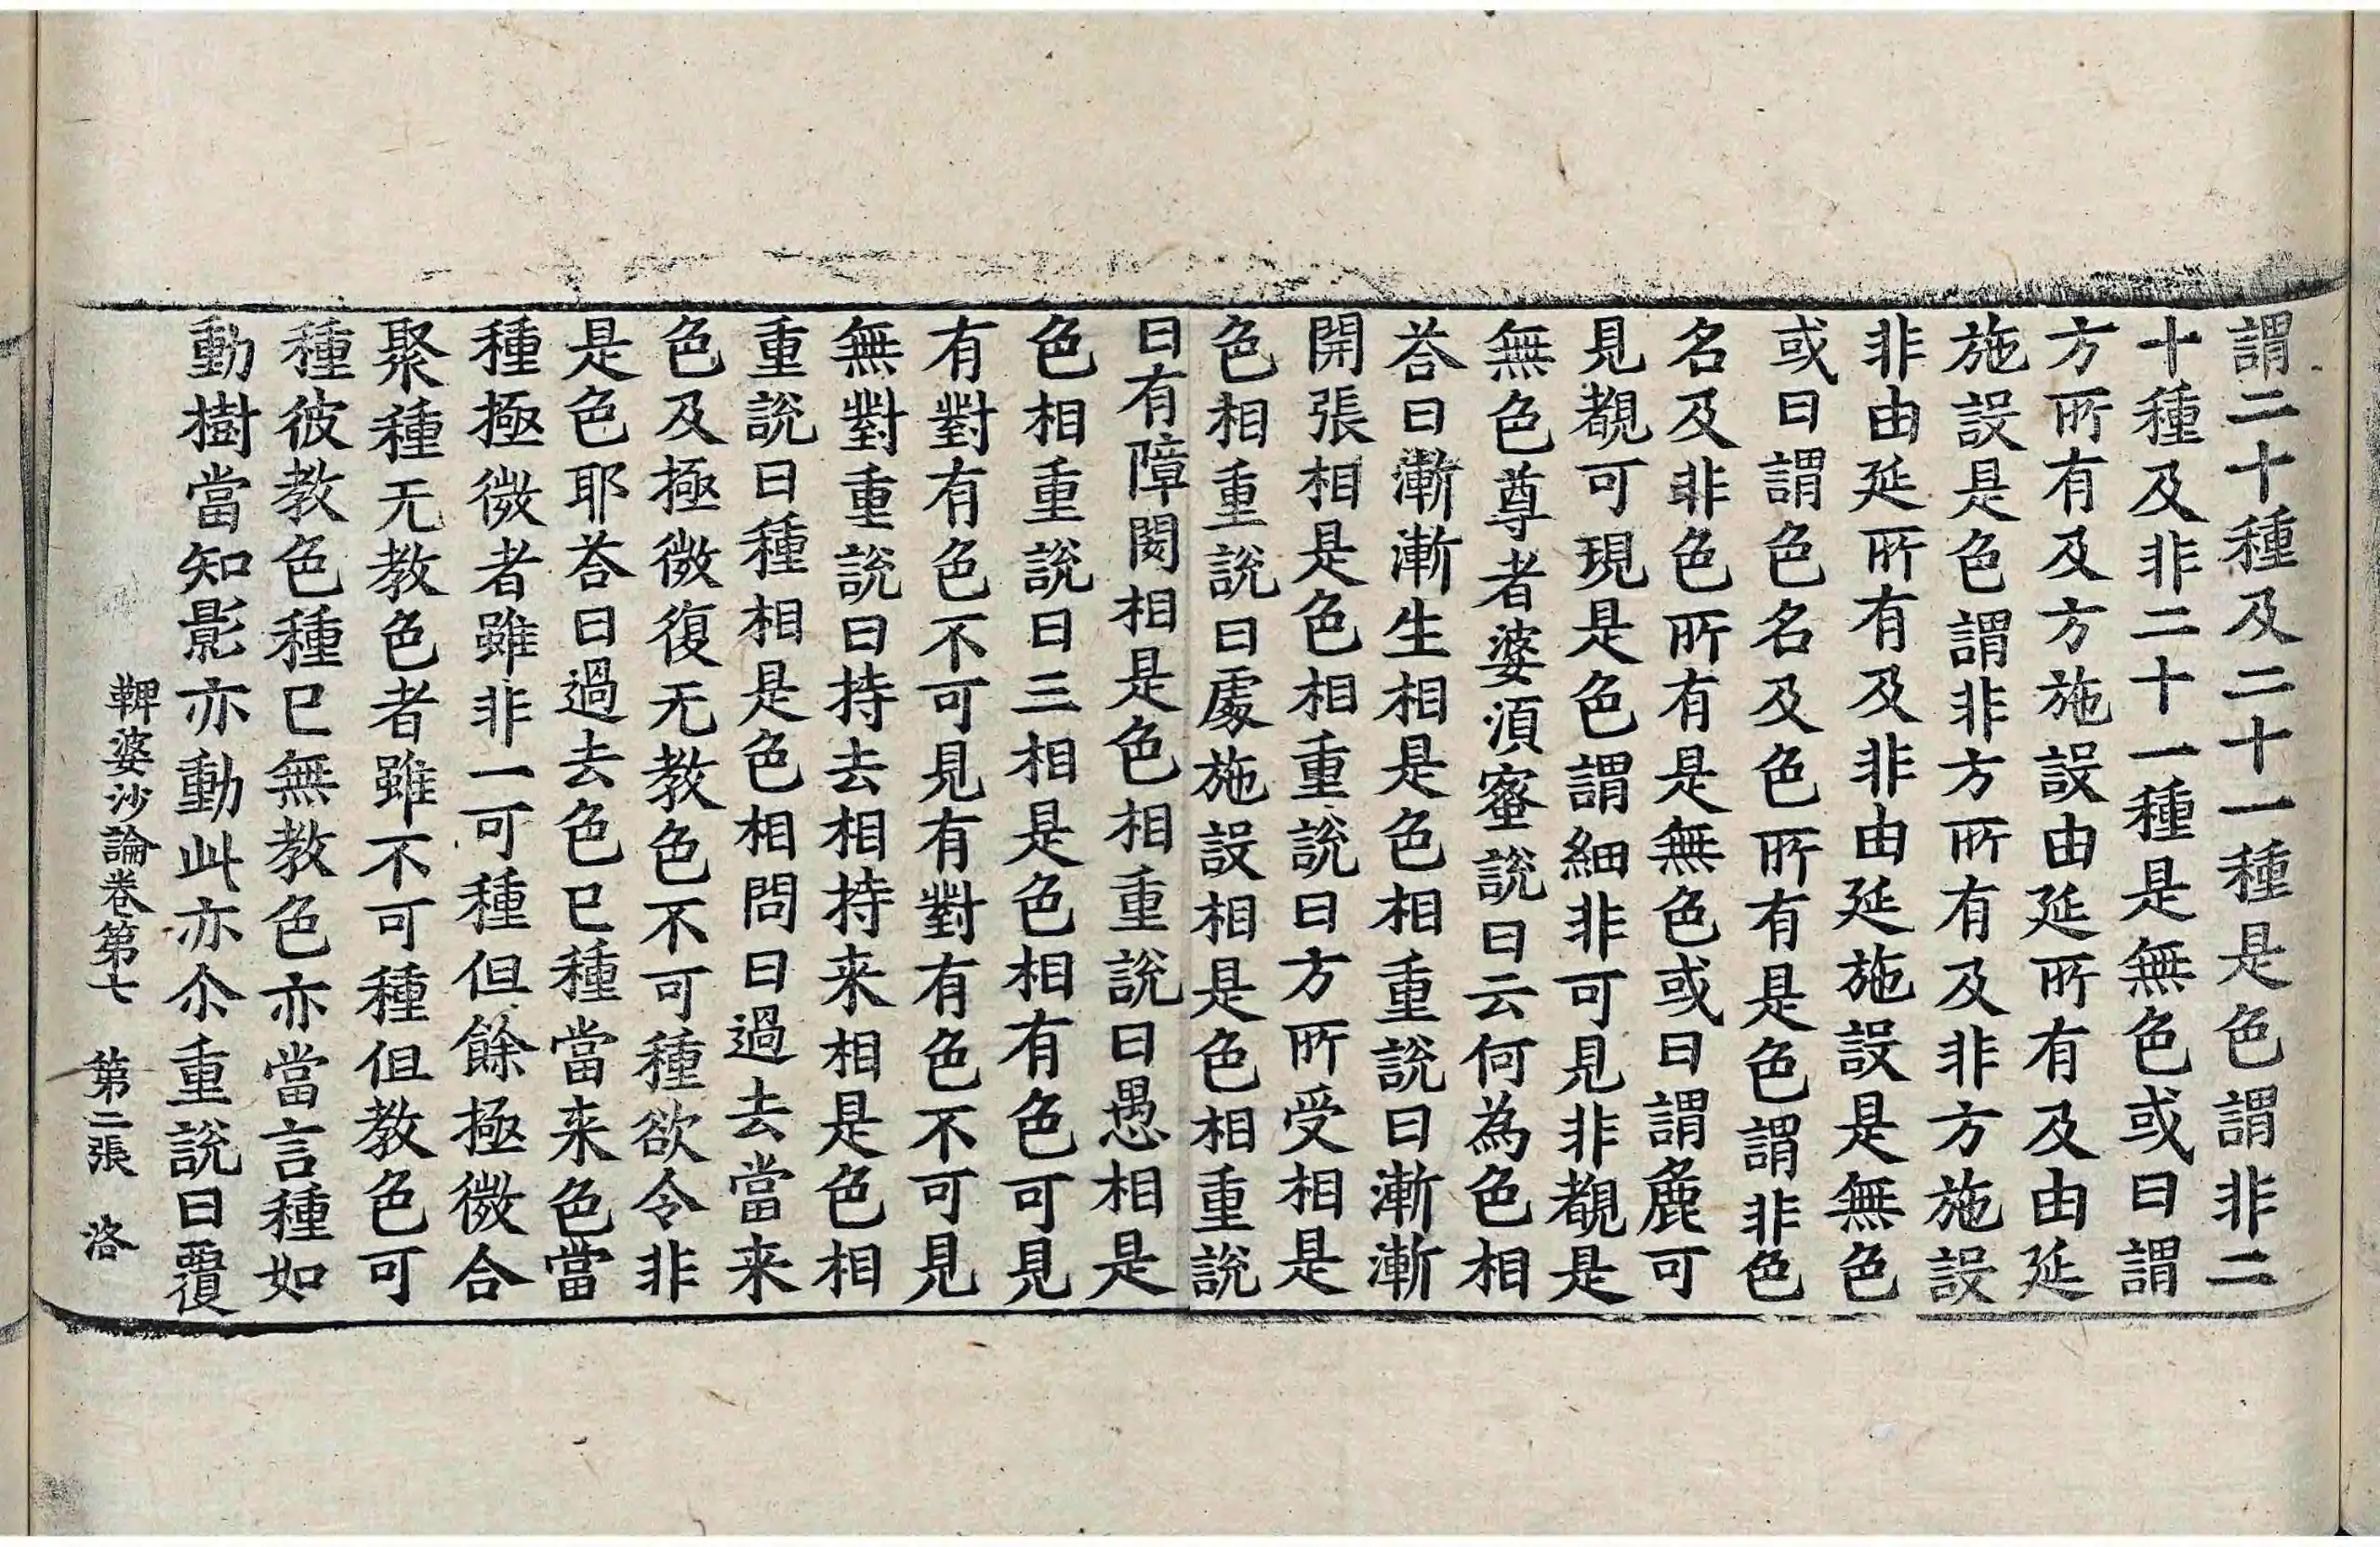 謂二十種及二十一種是色謂非二
十種及非二十一種是無色或曰謂
方所有及方施設由延所有及由延
施設是色謂非方所有及非方施設
非由延所有及非由延施設是無色
或曰謂色名及色所有是色謂非色
名及非色所有是無色或曰謂麁可
見覩可現是色謂細非可見非覩是
無色尊者婆須蜜說曰云何為色相
荅曰漸漸生相是色相重說曰漸漸
開張相是色相重說曰方所受相是
色相重說曰處施設相是色相重說
曰有障閡相是色相重說曰愚相是
色相重說曰三相是色相有色可見
有對有色不可見有對有色不可見
無對重說曰持去相持来相是色相
重說曰種相是色相問曰過去當来
色及極微復无教色不可種欲令非
是色耶荅曰過去色已種當来色當
種極微者雖非一可種但餘極微合
聚種无教色者雖不可種但教色可
種彼教色種已無教色亦當言種如
動樹當知影亦動此亦尒重說曰覆
鞞婆沙論卷第七 第二張 洛